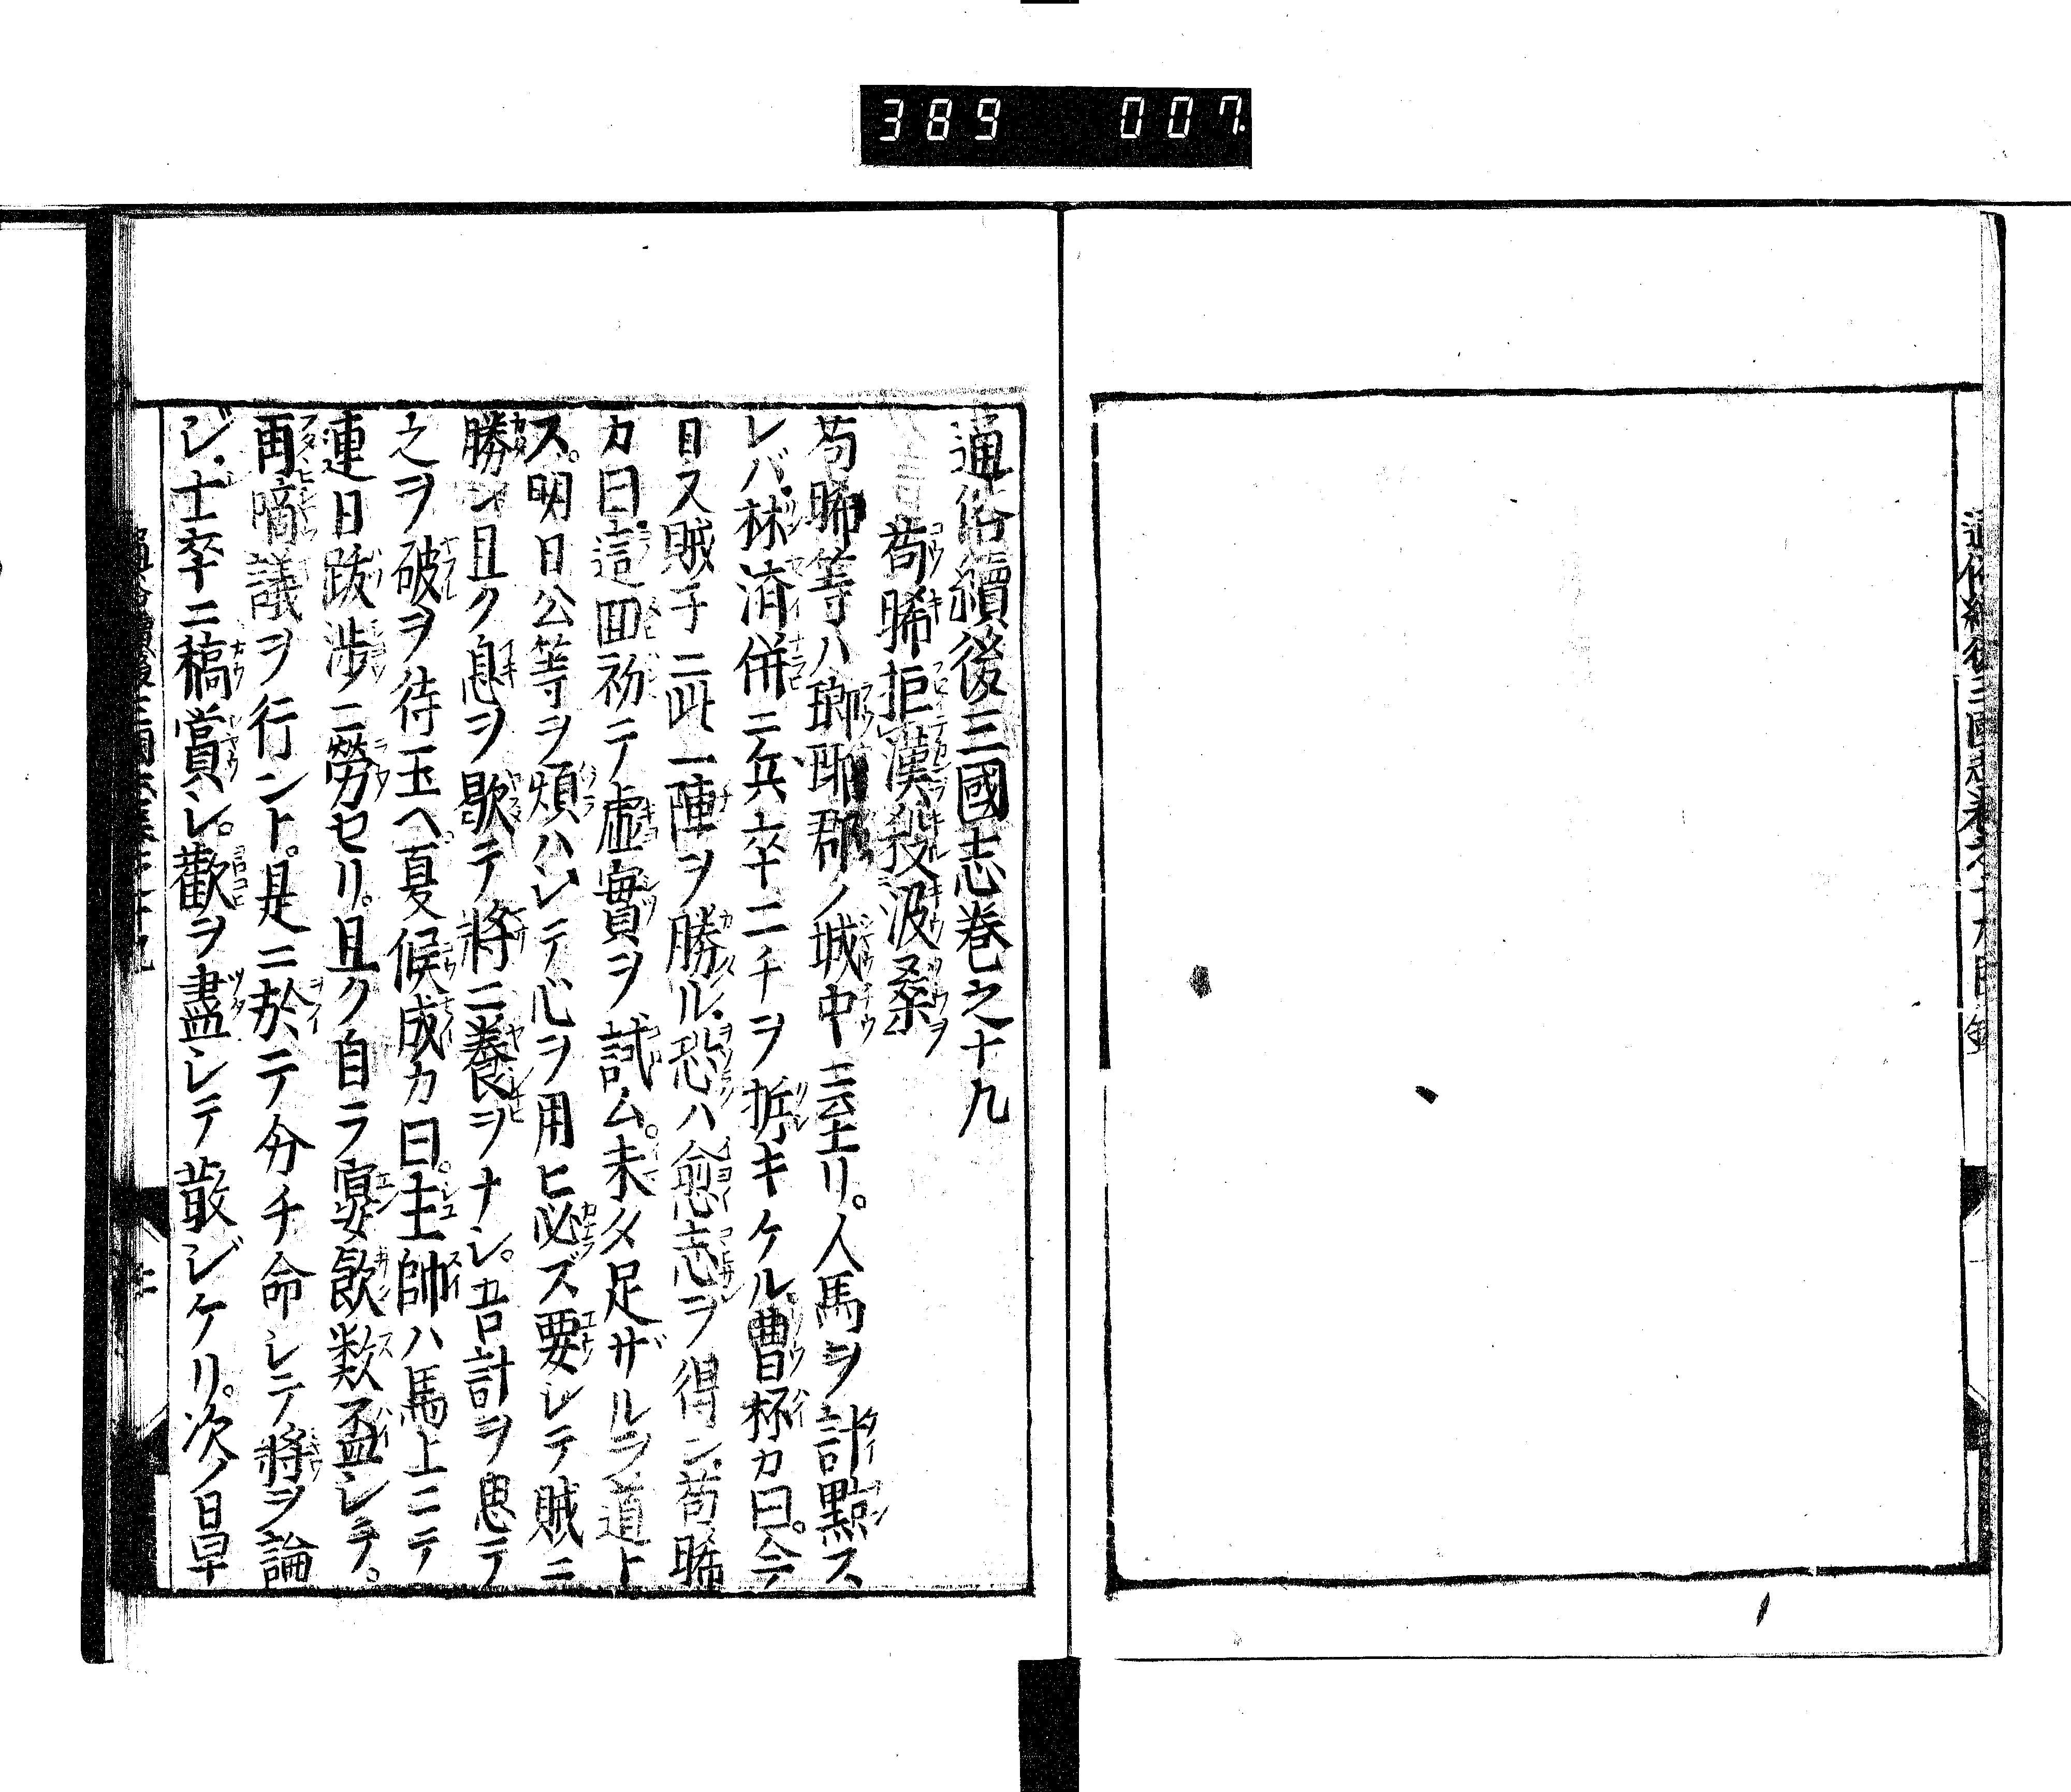 389 007
通俗續後三國志巻之十九
苟晞拒漢殺汲桑
苟晞等ハ瑯琊郡ノ城中ニ至リ。人馬ヲ計點ス
レバ林済併ニ兵卒二千ヲ折キケル。曹杯カ曰。今
日ス賊子ニ此一陣ヲ勝ル恐ハ愈志ヲ得ン。苟晞
カ曰這回初テ虚實ヲ試ム。未タ足ザルヲ道ト
ス。明日公等ヲ煩ハシテ心ヲ用ヒ必ズ要シテ賊ニ
勝ン且ク息ヲ歇テ將ニ養ヲナシ。吾計ヲ思テ
之ヲ破ヲ待玉ヘ。夏候成カ曰。主帥ハ馬上ニテ
連日跋渉ニ勞セリ。且ク自ラ宴飲数盃シテ。
再商議ヲ行ント。是ニ於テ分チ命シテ將ヲ論
ジ士卒ニ犒賞シ。歡ヲ盡シテ散ジケリ。次ノ日早